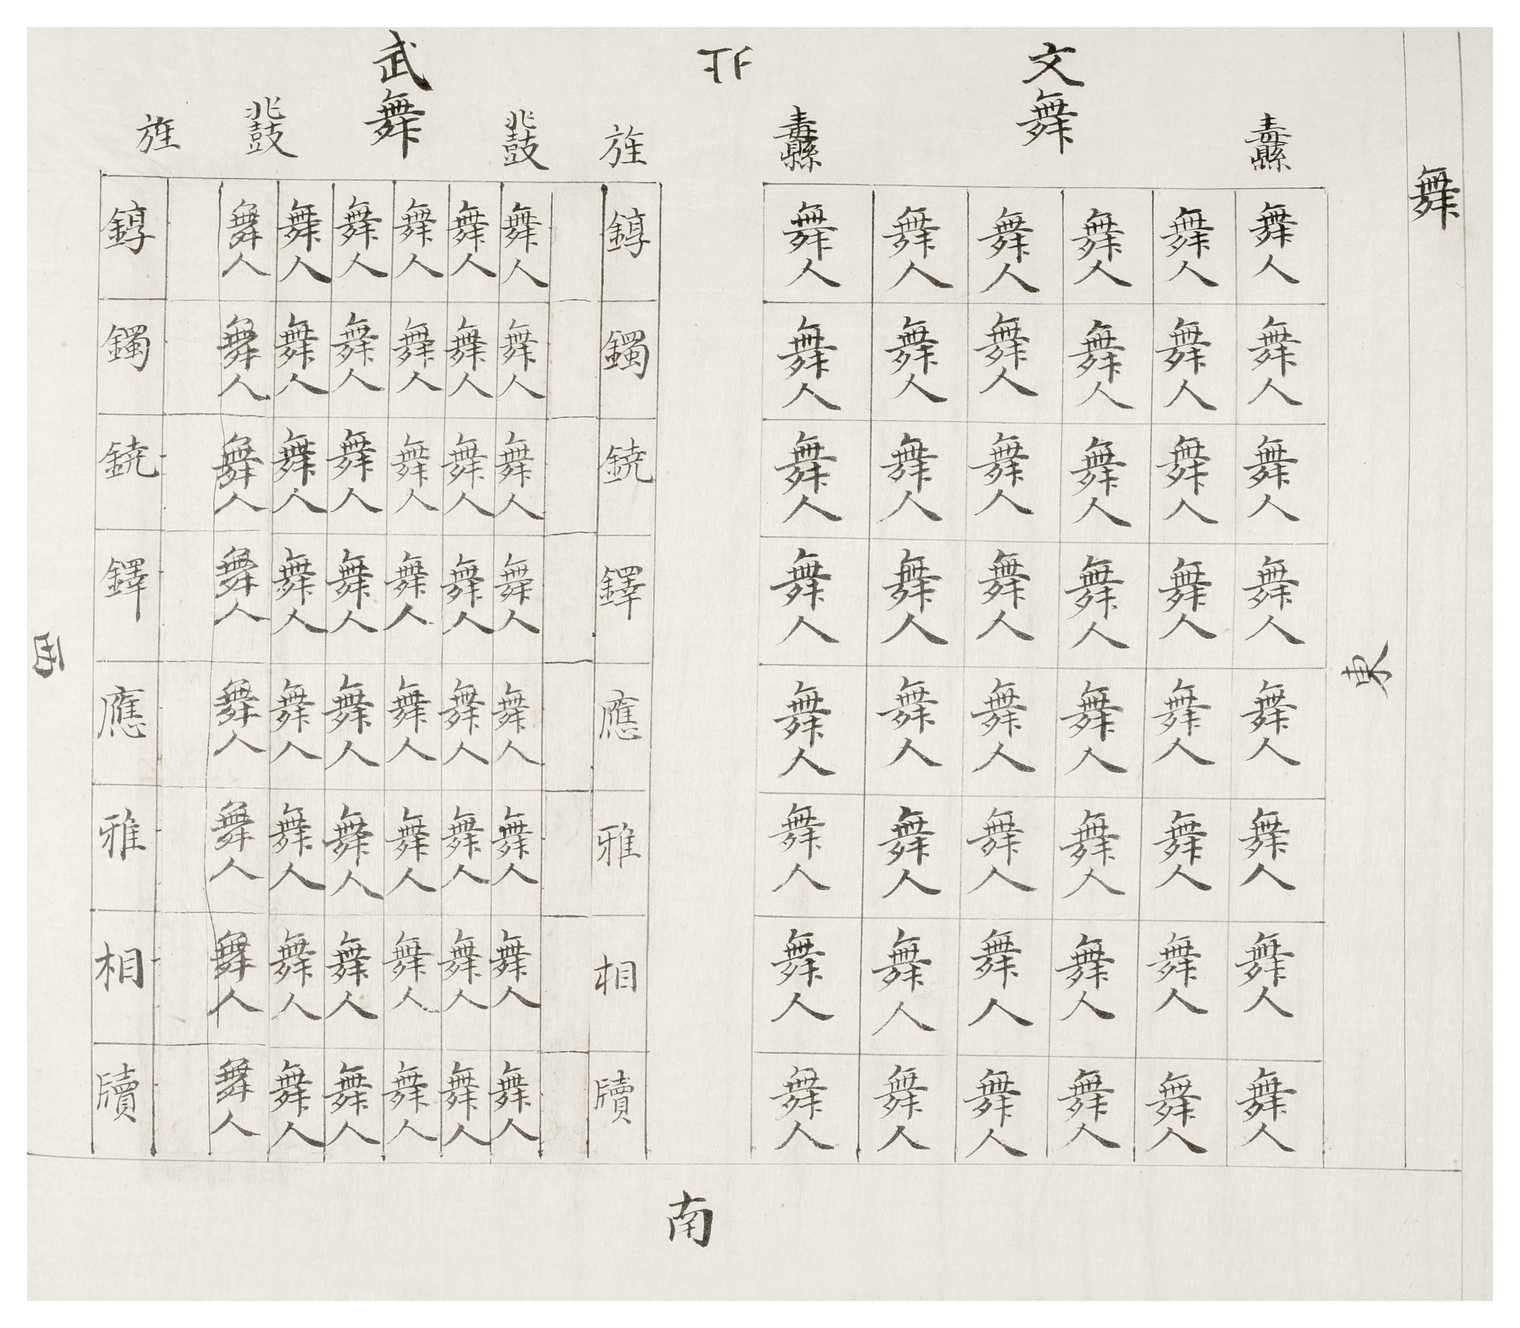 舞
北
東
文舞
纛
纛
舞人 舞人 舞人 舞人 舞人 舞人 舞人 舞人
舞人 舞人 舞人 舞人 舞人 舞人 舞人 舞人
舞人 舞人 舞人 舞人 舞人 舞人 舞人 舞人
舞人 舞人 舞人 舞人 舞人 舞人 舞人 舞人
舞人 舞人 舞人 舞人 舞人 舞人 舞人 舞人
舞人 舞人 舞人 舞人 舞人 舞人 舞人 舞人
武舞
旌
鼗
鼗
旌
錞 鐲 鐃 鐸 應 雅 相 牘
舞人 舞人 舞人 舞人 舞人 舞人 舞人 舞人
舞人 舞人 舞人 舞人 舞人 舞人 舞人 舞人
舞人 舞人 舞人 舞人 舞人 舞人 舞人 舞人
舞人 舞人 舞人 舞人 舞人 舞人 舞人 舞人
舞人 舞人 舞人 舞人 舞人 舞人 舞人 舞人
舞人 舞人 舞人 舞人 舞人 舞人 舞人 舞人
錞 鐲 鐃 鐸 應 雅 相 牘
西
南